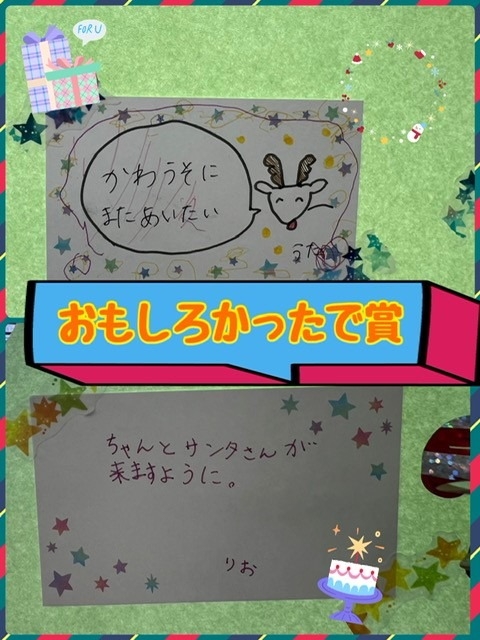 FOR U
かわうそに
またあいたい
うた
おもしろかったで賞
ちゃんとサンタさんが
来ますように。
りお